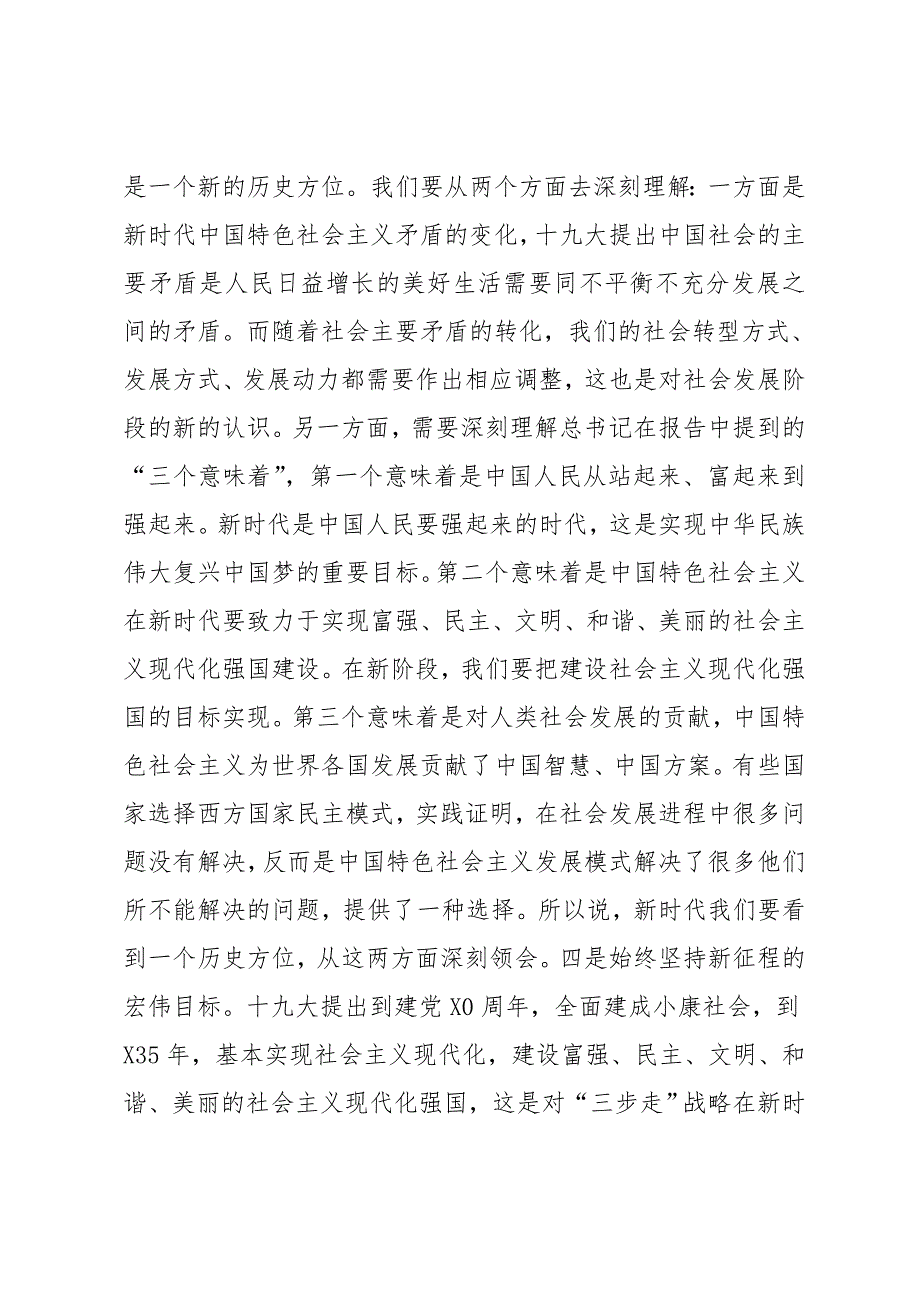 是一个新的历史方位。我们要从两个方面去深刻理解：一方面是
新时代中国特色社会主义矛盾的变化，十九大提出中国社会的主
要矛盾是人民日益增长的美好生活需要同不平衡不充分发展之
间的矛盾。而随着社会主要矛盾的转化，我们的社会转型方式、
发展方式、发展动力都需要作出相应调整，这也是对社会发展阶
段的新的认识。另一方面，需要深刻理解总书记在报告中提到的
“三个意味着”，第一个意味着是中国人民从站起来、富起来到
强起来。新时代是中国人民要强起来的时代，这是实现中华民族
伟大复兴中国梦的重要目标。第二个意味着是中国特色社会主义
在新时代要致力于实现富强、民主、文明、和谐、美丽的社会主
义现代化强国建设。在新阶段，我们要把建设社会主义现代化强
国的目标实现。第三个意味着是对人类社会发展的贡献，中国特
色社会主义为世界各国发展贡献了中国智慧、中国方案。有些国
家选择西方国家民主模式，实践证明，在社会发展进程中很多问
题没有解决，反而是中国特色社会主义发展模式解决了很多他们
所不能解决的问题，提供了一种选择。所以说，新时代我们要看
到一个历史方位，从这两方面深刻领会。四是始终坚持新征程的
宏伟目标。十九大提出到建党X0周年，全面建成小康社会，到
X35年，基本实现社会主义现代化，建设富强、民主、文明、和
谐、美丽的社会主义现代化强国，这是对“三步走”战略在新时